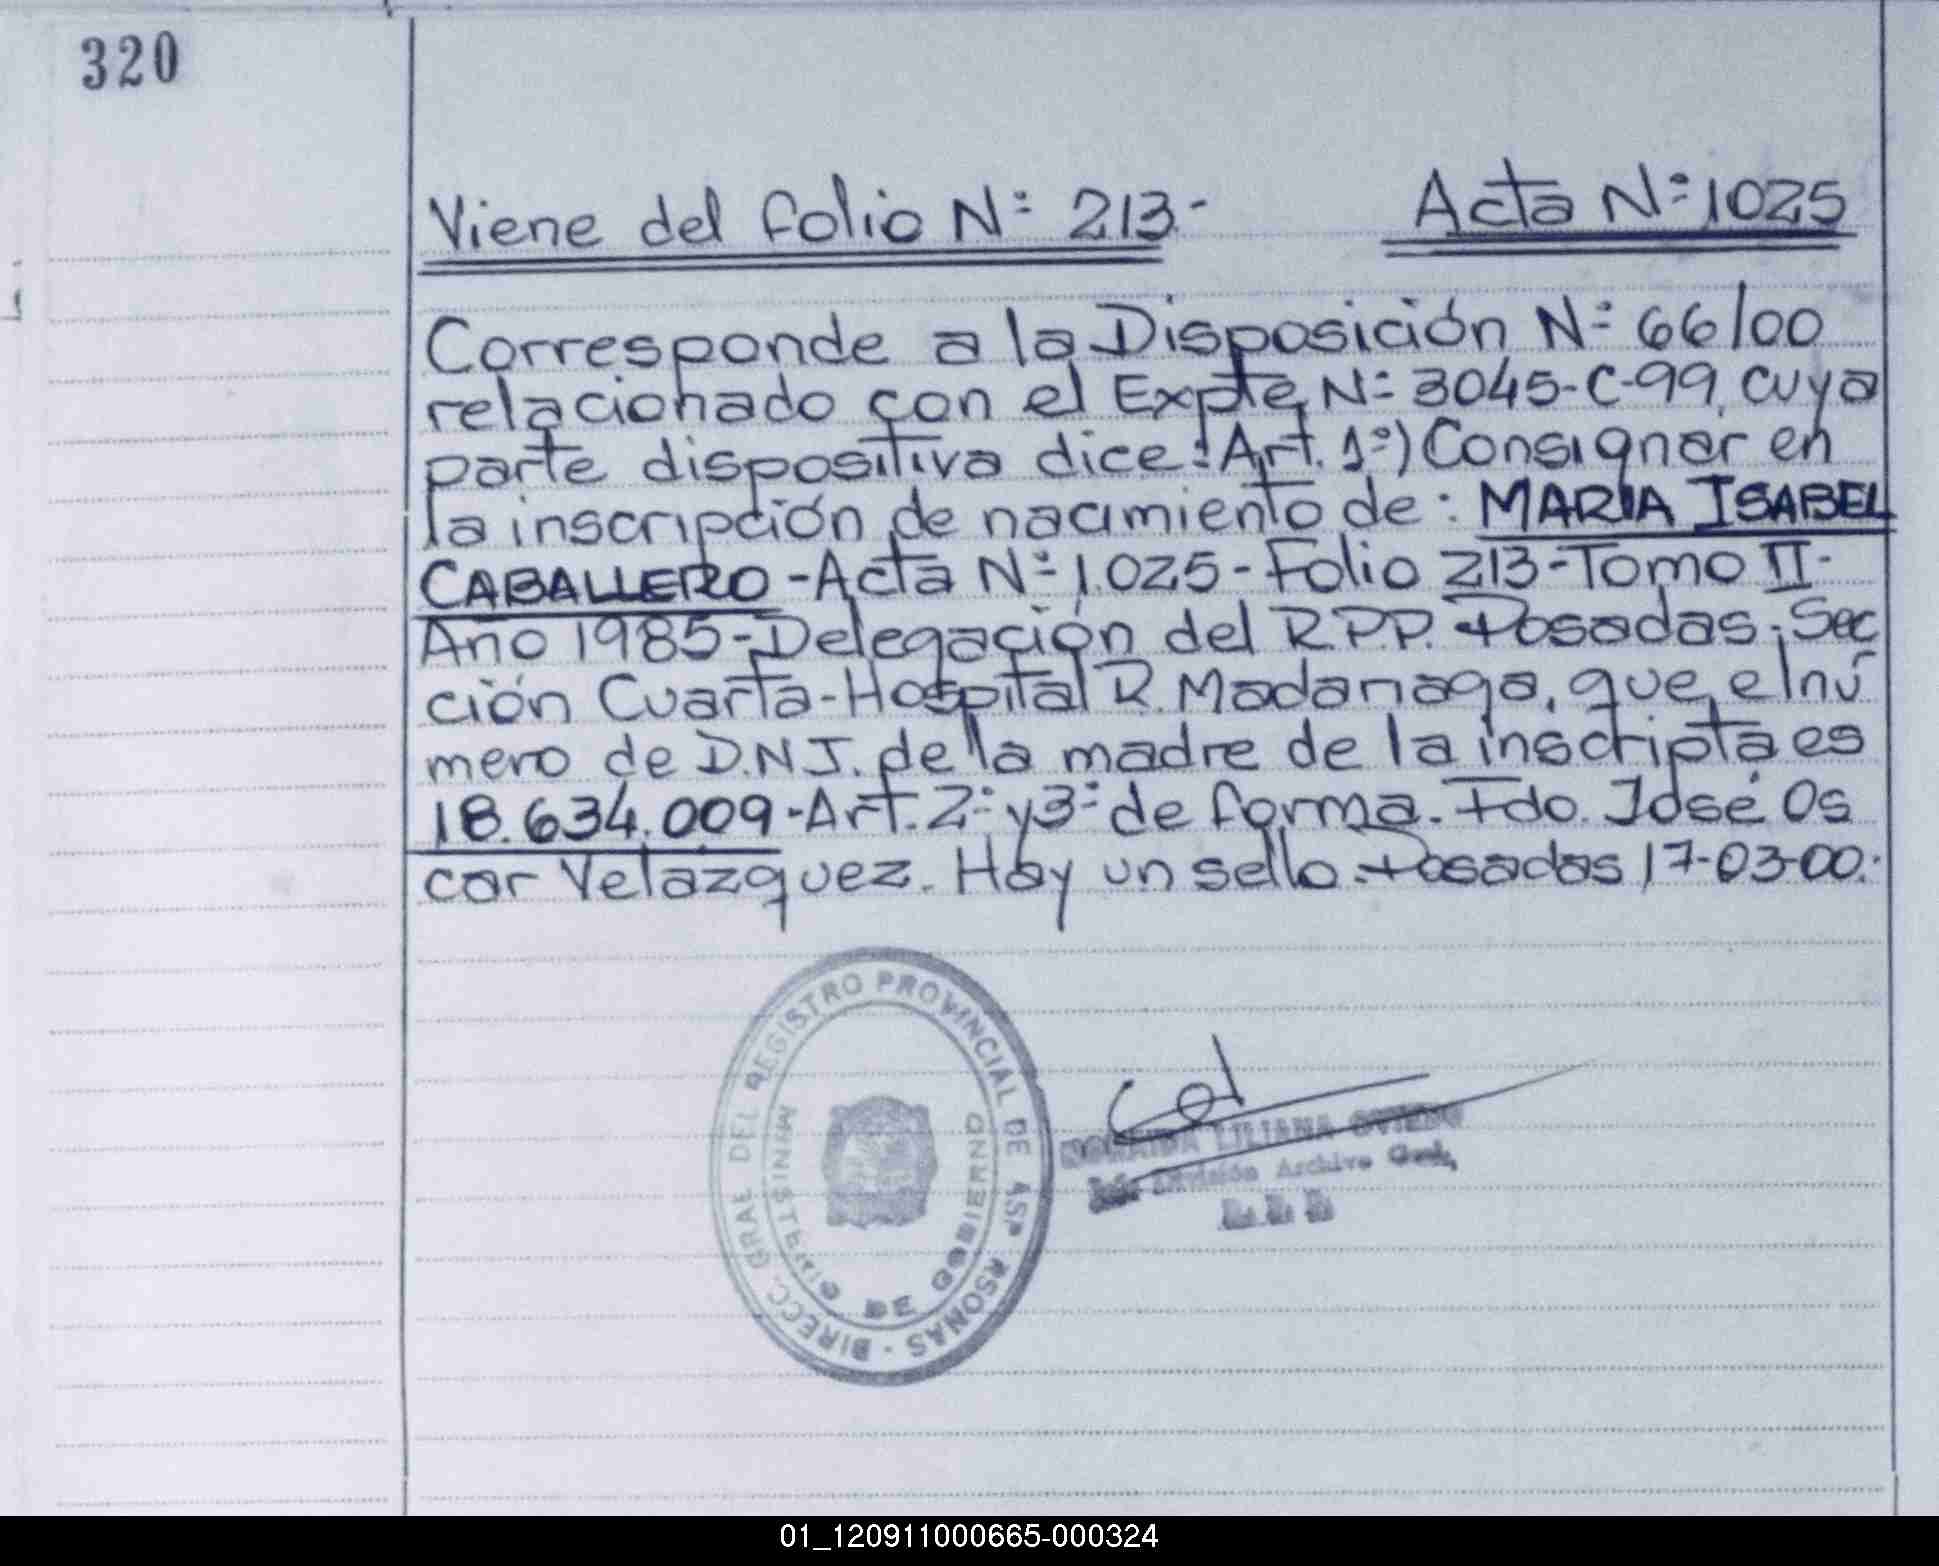 320
Viene del folio Nº 213.- Acta Nº 1025
Corresponde a la Disposición Nº 66/00
relacionado con el Expte Nº 3045-C-99, cuya
parte dispositiva dice: Art. 1º) Consignar en
la inscripción de nacimiento de: MARIA ISABEL
CABALLERO - Acta Nº 1.025 - Folio 213 - Tomo II -
Año 1985 - Delegación del R.P.P. Posadas - Sec
ción Cuarta - Hospital R. Madariaga, que el nú
mero de D.N.I. de la madre de la inscripta es
18.634.009 - Art. 2º y 3º de forma. Fdo. José Os
car Velazquez. Hay un sello. Posadas 17-03-00.
DIRECC. GRAL DEL REGISTRO PROVINCIAL DE AS PERSONAS
MINISTERIO DE GOBIERNO
LILIANA OVIEDO
División Archivo Gral.
01_120911000665-000324